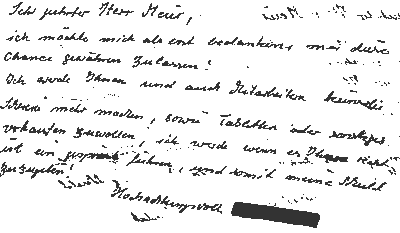 Sehr geehrter Herr Meur,
ich möchte mich als erst bedanken, mir diese
Chance gewähren zulassen!
Ich werde Ihnen und auch Mitarbeitern keinerlei
mehr machen, sowie Tabletten oder sonstiges
verkaufen zuwollen, ich werde wenn es Ihnen recht
ist ein gespräch führen, und somit meine Schuld
zuzugeben!
Hochachtungsvoll